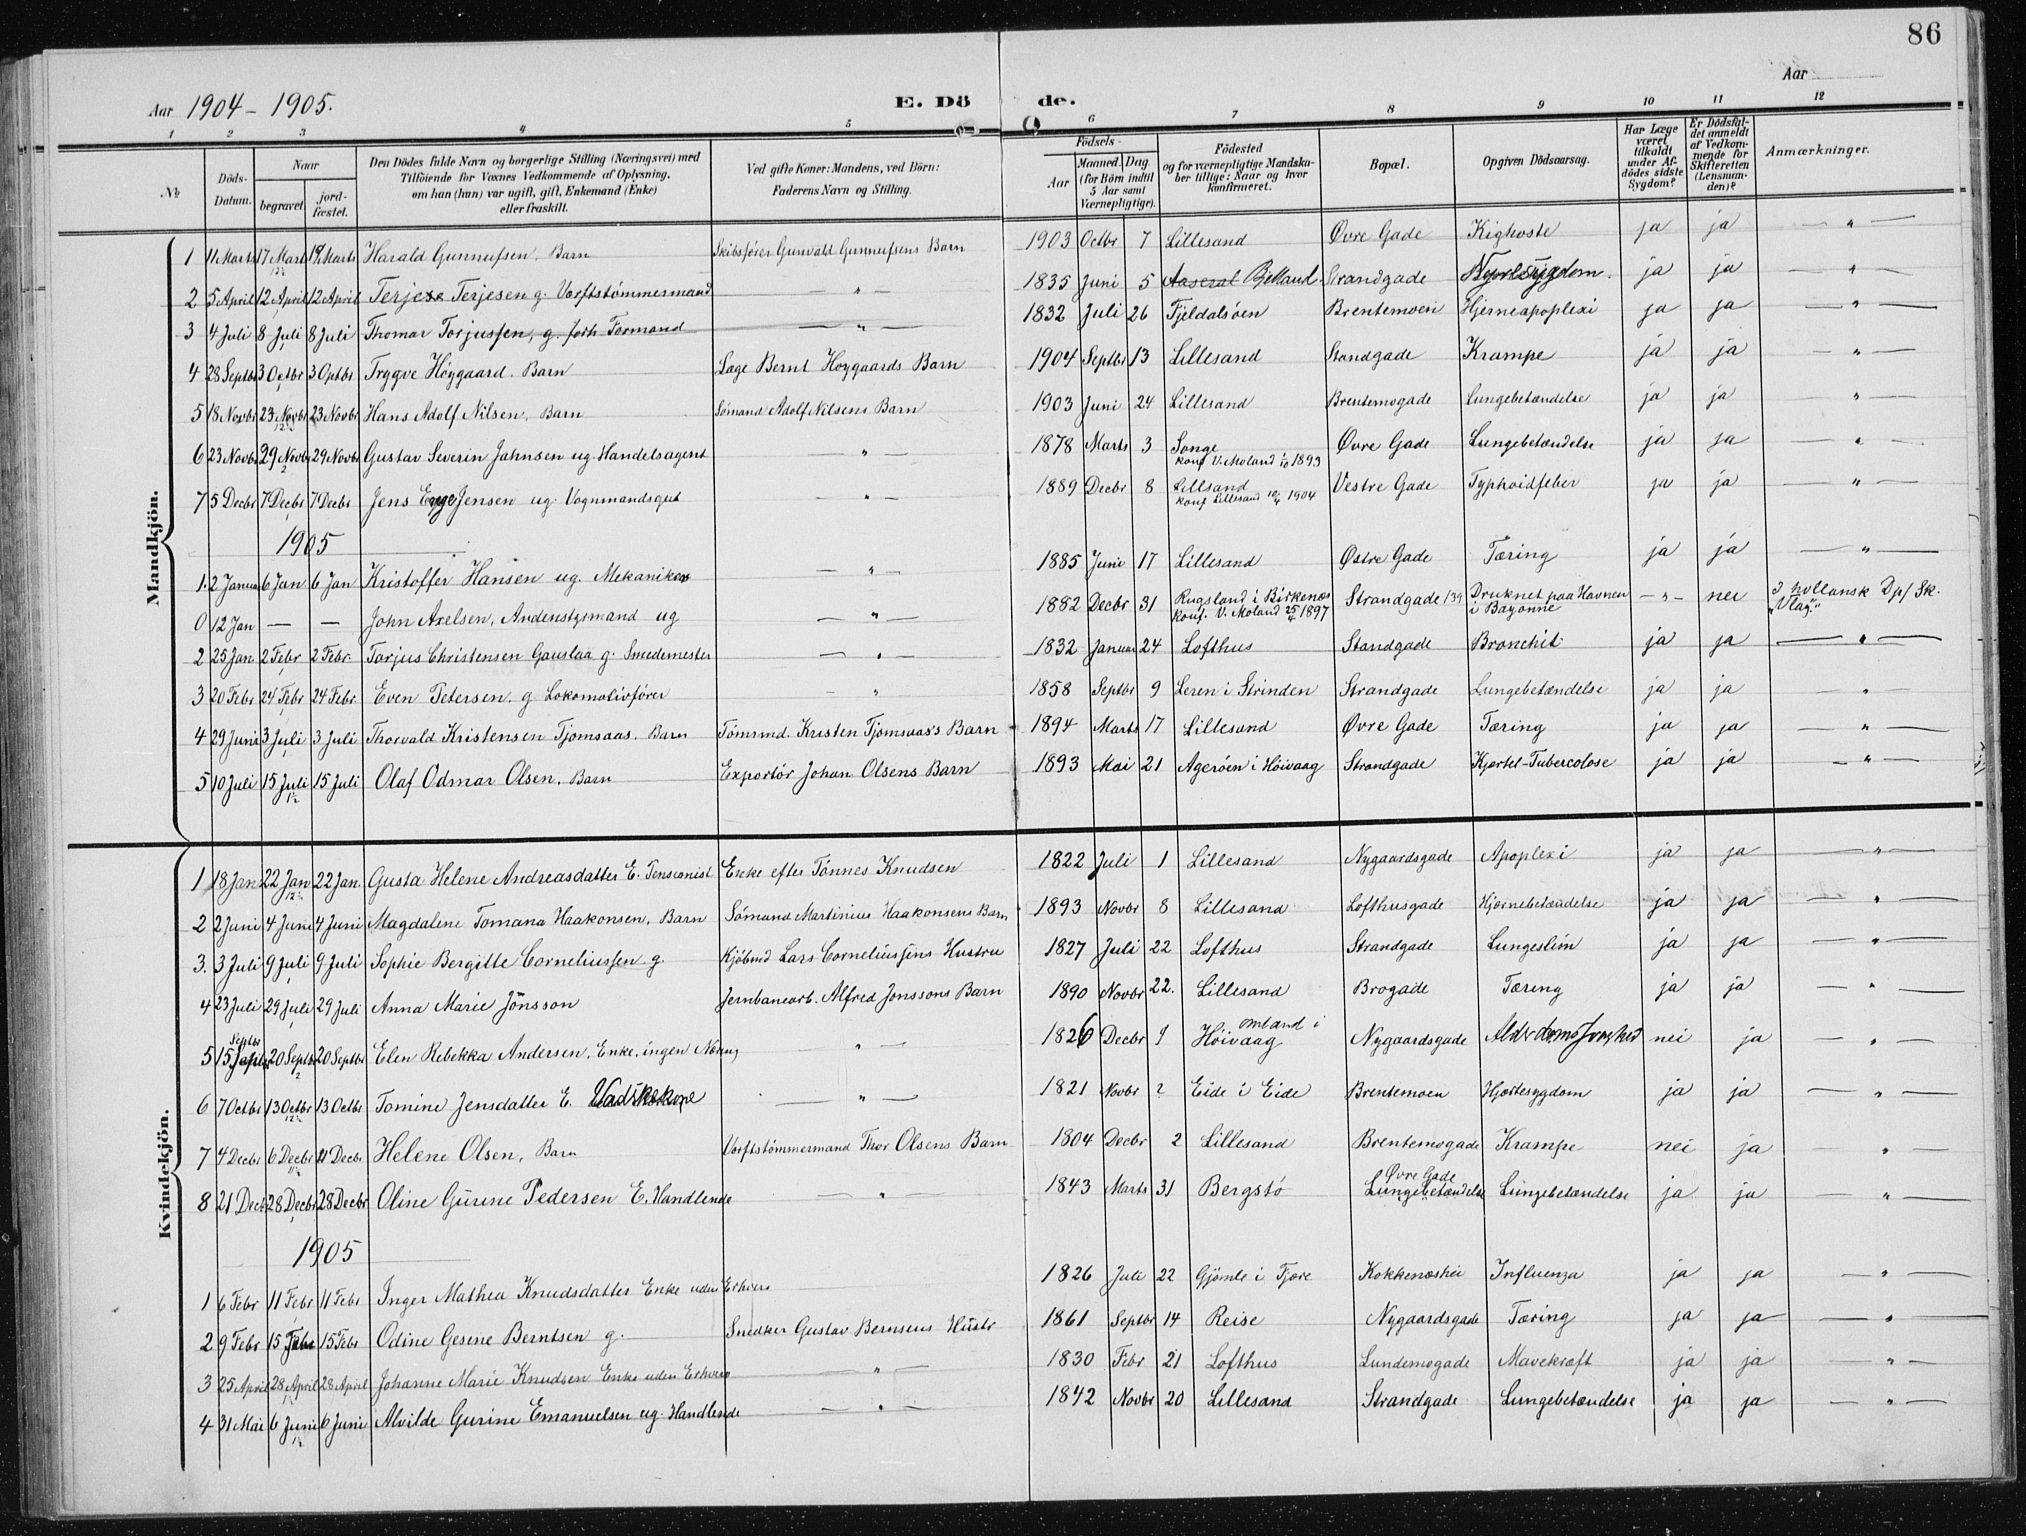 86
Aar 1904-1905.
E. Dö
de.
Aar
1 2 3 4 5 6 7 8 9 10 11 12
№
Döds-Datum.
Naar
begravet
jord-fæstet.
Den Dödes fulde Navn og borgerlige Stilling (Næringsvei) med
Tilföiende for Voxnes Vedkommende af Oplysning,
om han (hun) var ugift, gift, Enkemand (Enke)
eller fraskilt.
Ved gifte Koner: Mandens, ved Börn:
Faderens Navn og Stilling.
Födsels-
Aar
Maaned. Dag.
(for Börn indtil
5 Aar samt
Værnepligtige).
Födested
og for værnepligtige Mandska-
ber tillige: Naar og hvor
konfirmeret.
Bopæl.
Opgiven Dödsaarsag.
Har Læge
været
tilkaldt
under Af-
dödes sidste
Sygdom?
Er Dödsfal-
det anmeldt
af Vedkom-
mende for
Skifteretten
(Lensman-
den)?
Anmærkninger.
Mandkjön.
1 11 Marts 17 Mart 12½ 19 Marts Harald Gunnufsen, Barn Skibsfører Gunvald Gunnufsens Barn 1903 Octbr 7 Lillesand Øvre Gade Kighoste ja ja — " —
2 5 April 12 April 12 April Terjese Terjesen g. Værftstømmermand — " — 1835 Juni 5 Aaseral Bjelland Strandgade ja ja — " —
3 4 Juli 8 Juli 8 Juli Thomas Torjussen, g. forh. Formand — " — 1832 Juli 26 Fjeldalsöen Brentemoen Hjerneapoplexi ja ja — " —
4 28 Septbr 3 Octbr 3 Optbr Trygve Höygaard. Barn Læge Bernt Hoygaards Barn 1904 Septbr 13 Lillesand Standgade Krampe ja ja — " —
5 18 Novbr 23 Novbr 12½ 23 Novbr Hans Adolf Nilsen, Barn Sømand Adolf Nilsens Barn 1903 Juni 24 Lillesand Brentemogade Lungebetændelse ja ja — " —
6 23 Novbr 29 Novbr 2 29 Novbr Gustav Severin Jahnsen ug. Handelsagent — " — 1878 Marts 3 Songe Øvre Gade Lungebetændelse ja ja — " —
konf V. Moland 1893
7 5 Decbr 7 Decbr 1 7 Decbr Jens Enge Jensen ug. Vognmandsgut — " — 1889 Decbr 8 Lillesand Vestre Gade Typhoidfeber ja ja — " —
konf Lillesand 10/4 1904
1905
1. 2 Januar 6 Jan 6 Jan Kristoffer Hansen ug. Mekaniker — " — 1885 Juni 17 Lillesand Østre Gade Tæring ja ja — " —
0 12 Jan — — John Axelsen, Andenstyrmand ug — " — 1882 Decbr 31 Rugsland i Birkenes Strandgade 139 Druknet paa Havnen — " — nei I hollansk Dp/Sk.
konf. V. Moland 25/4 1897 i Bayonne "Vlag."
2 25 Jan. 2 Febr 2 Febr. Torjus Christensen Gauslaa g. Smedemester — " — 1832 Januar 24 Lofthus Standgade Bronchit ja ja — " —
3 20 Febr 24 Febr 24 Febr. Even Petersen. g. Lokomotivfører — " — 1858 Septbr 9 Leren i Strinden Strandgade Lungebetændelse ja ja — " —
4 29 Juni 3 Juli 3 Juli Thorvald Kristensen Tjomsaas. Barn Tömmd. Kristen Tjomsaas's Barn 1894 Marts 17 Lillesand Øvre Gade Tæring ja ja — " —
5 10 Juli 15 Juli 1½ 15 Juli Olaf Odmar Olsen. Barn Exportör Johan Olsens Barn 1893 Mai 21 Agerøen i Höivaag Strandgade Kjertel-Tubercolose ja ja — " —
Kvindekjön.
1 18 Jan 22 Jan 12½ 22 Jan. Gusta Helene Andreasdatter E. Pensionist Enke efter Tönnes Knudsen 1822 Juli 1 Lillesand Nygaardsgade Apoplexi ja ja — " —
2 2 Juni 4 Juni 4 Juni Magdalene Tomana Haakonsen, Barn Sömand Martinius Haakonsens Barn 1893 Novbr 8 Lillesand Lofthusgade Hjernebetændelse ja ja — " —
3. 3 Juli 9 Juli 9 Juli Sophie Bergitte Corneliussen g. Kjöbmd Lars Corneliussens Hustru 1827 Juli 22 Lofthus Strandgade Lungeslim ja ja — " —
4 23 Juli 29 Juli 29 Juli Anna Marie Jönsson Jernbanearb. Alfred Jonssons Barn 1890 Novbr 22. Lillesand Brogade Tæring ja ja — " —
Septbr
5 15 20 Septbr 2 20 Septbr Elen Rebekka Andersen, Enke, ingen Næring — " — 1826 Decbr 9 Omland i Höivaag Nygaardsgade nei ja — " —
6 7 Octbr 13 Octbr 12½ 13 Octbr Tomine Jensdatter E. Vadskekone — " — 1821 Novbr ? Eide i Eide Brentemoen Hjertesygdom ja ja — " —
7 4 Decbr 6 Decbr 11½ 11 Decbr Helene Olsen, Barn Værftstömmermand Thor Olsens Barn 1804 Decbr 2 Lillesand Brentemogade Krampe nei ja "
8 21 Decbr 28 Decbr 1 28 Decbr Oline Gurine Pedersen E. Handlende — " — 1843 Marts 31 Bergstö Øvre Gade Lungebetændelse Lungebetændelse ja ja "
1905
1 6 Febr 11 Febr 11 Febr Inger Mathea Knudsdatter Enke uden Erhverv 1826 Juli 22 Gjömle i Fjære Kokkenæshei Influenza ja ja — " —
2 9 Febr 15 Febr 15 Febr Odine Gesine Berntsen g. Snedker Gustav Bernsens Hustr 1861 Septbr 14 Reise Nygaardsgade Tæring ja ja — " —
3 25 April 28 April 1½ 28 April Johanne Marie Knudsen Enke uden Erhverv — " — 1830 Febr 21 Lofthus Lundemogade Mavekræft ja ja — " —
4 31 Mai 6 Juni 1½ 6 Juni Alvilde Gurine Emanuelsen ug. Handlende — " — 1842 Novbr 20 Lillesand Strandgade Lungebetændelse ja ja — " —